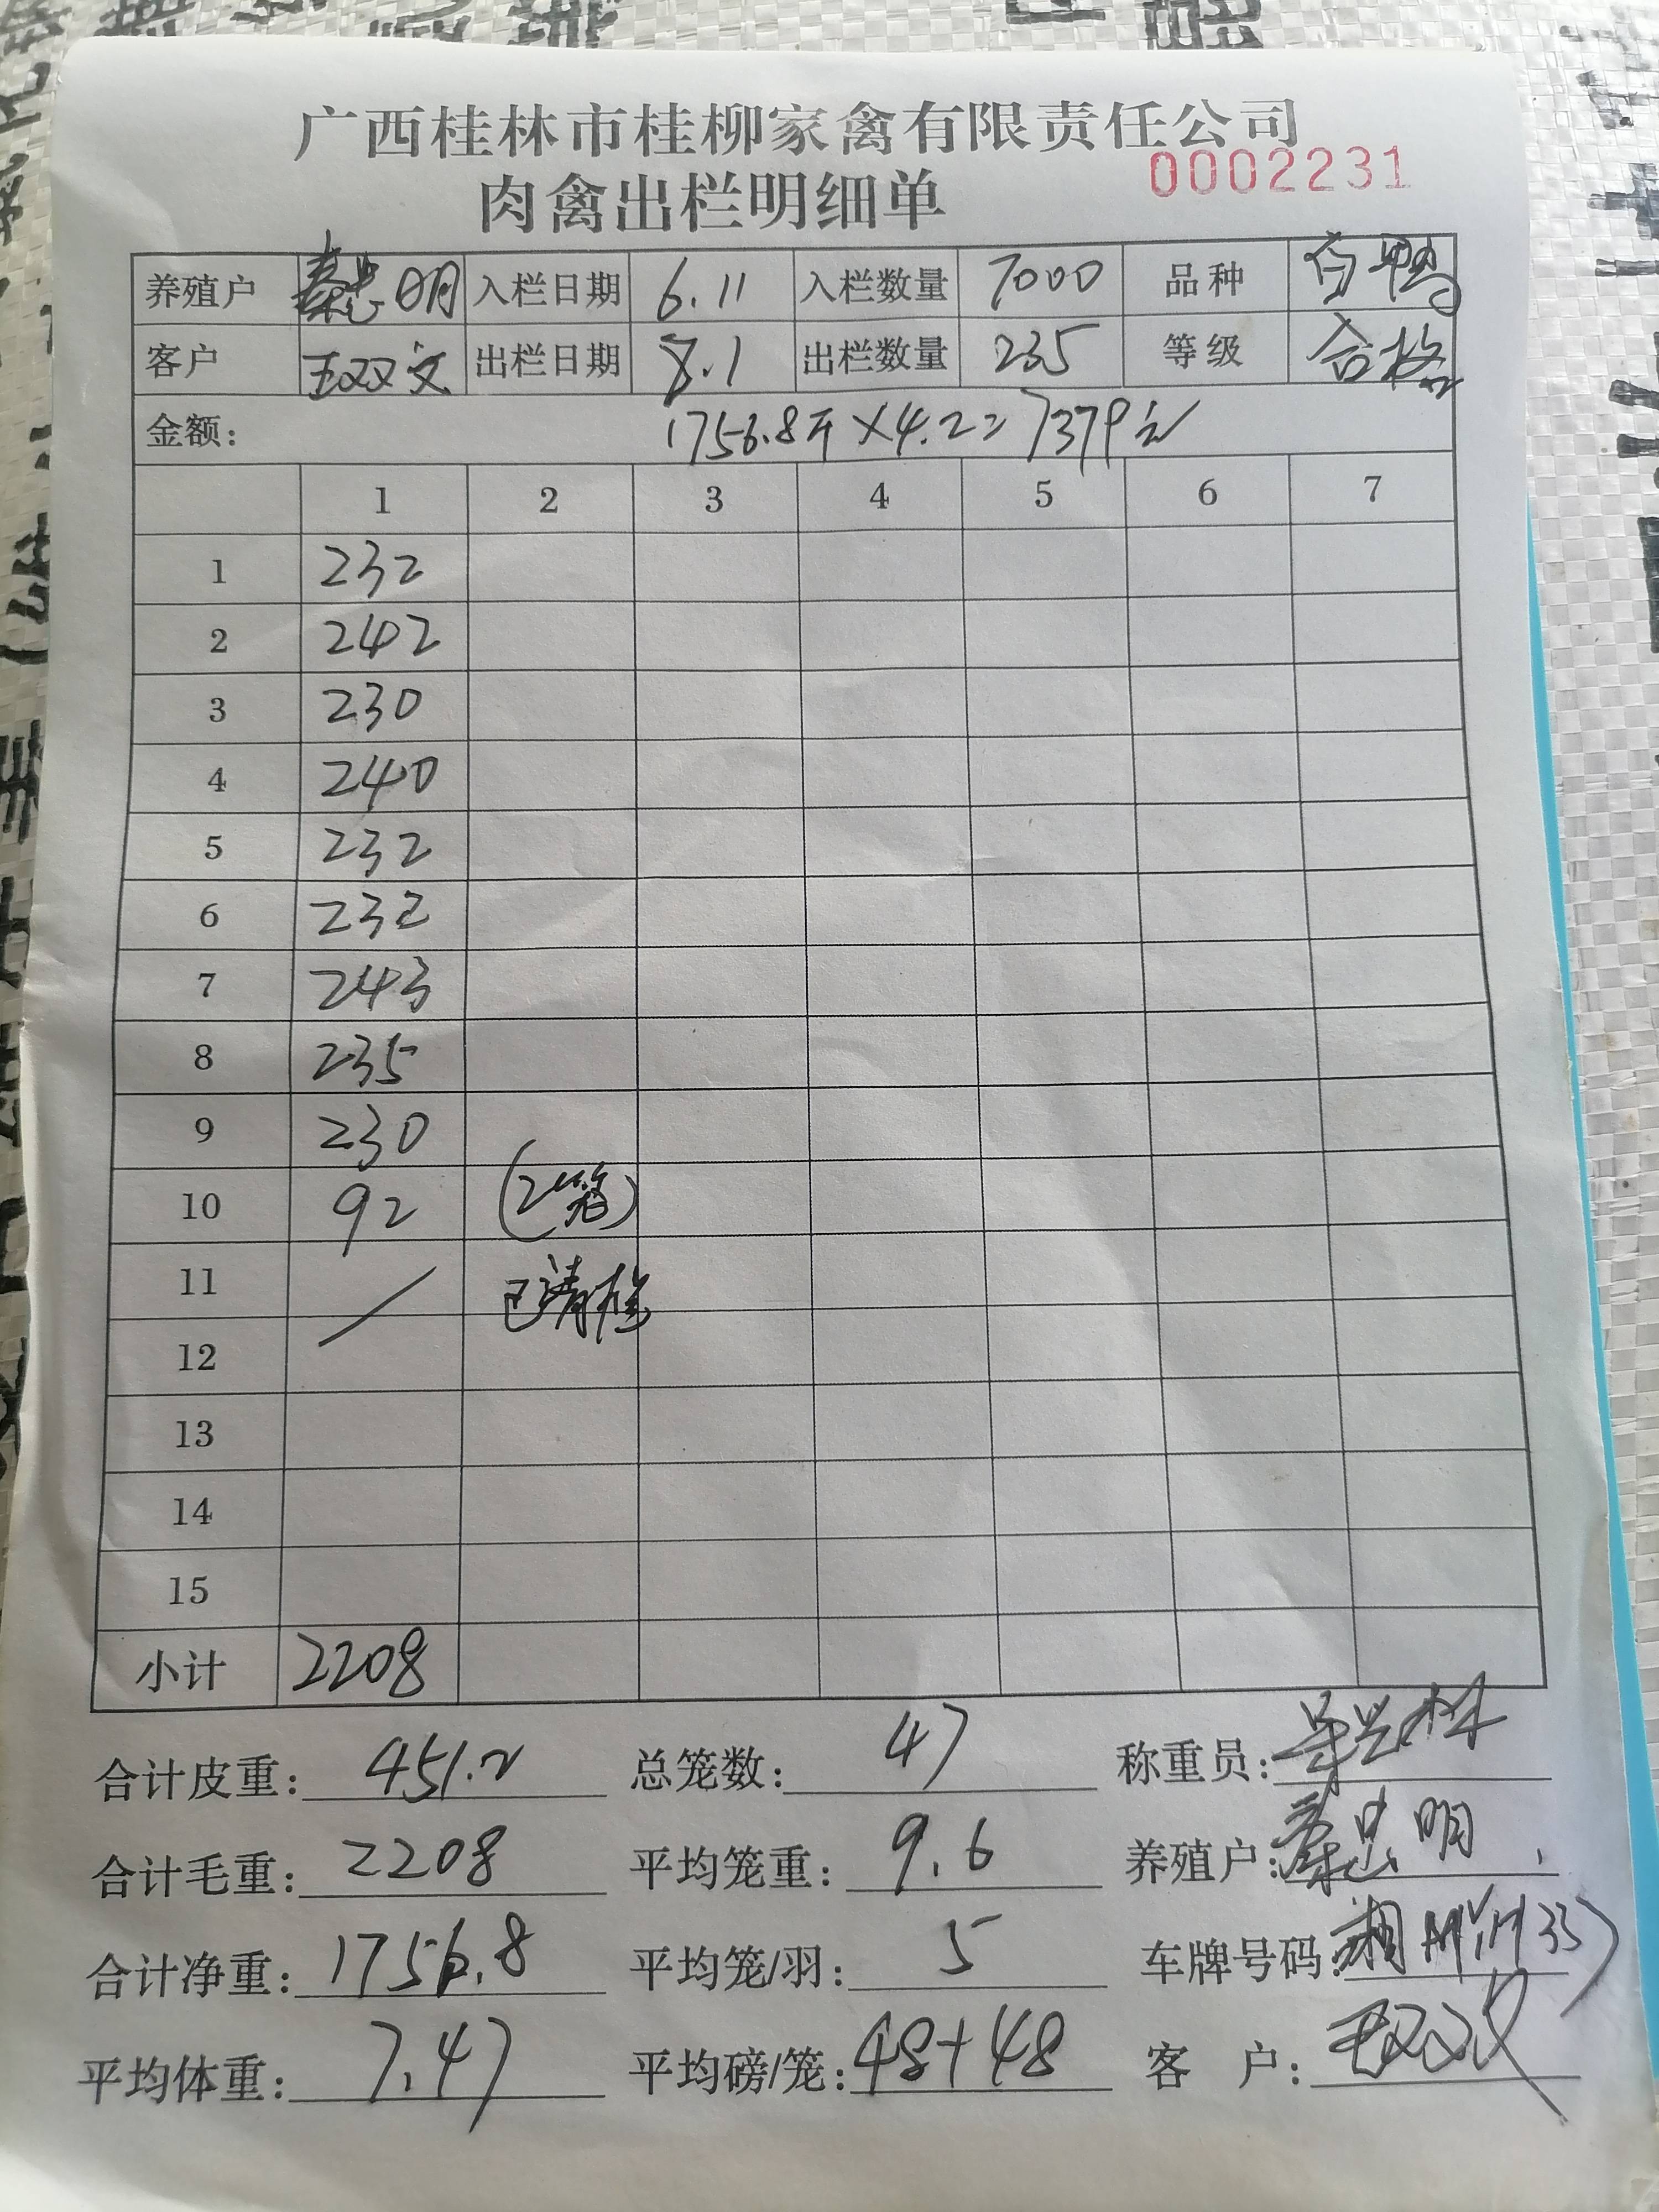 广西桂林市桂柳家禽有限责任公司
肉禽出栏明细单 0002231
养殖户 秦忠明 入栏日期 6.11 入栏数量 7000 品种 白鸭
客户 王双文 出栏日期 8.1 出栏数量 235 等级 合格
金额: 1756.8斤×4.2=7379元
1 2 3 4 5 6 7
1 232
2 242
3 230
4 240
5 232
6 232
7 243
8 235
9 230
10 92 (2笼)
11
12
13
14
15
小计 2208
合计皮重: 451.2 总笼数: 47 称重员:
合计毛重: 2208 平均笼重: 9.6 养殖户: 秦忠明
合计净重: 1756.8 平均笼/羽: 5 车牌号码:
平均体重: 7.47 平均磅/笼: 48+48 客 户: 王双文